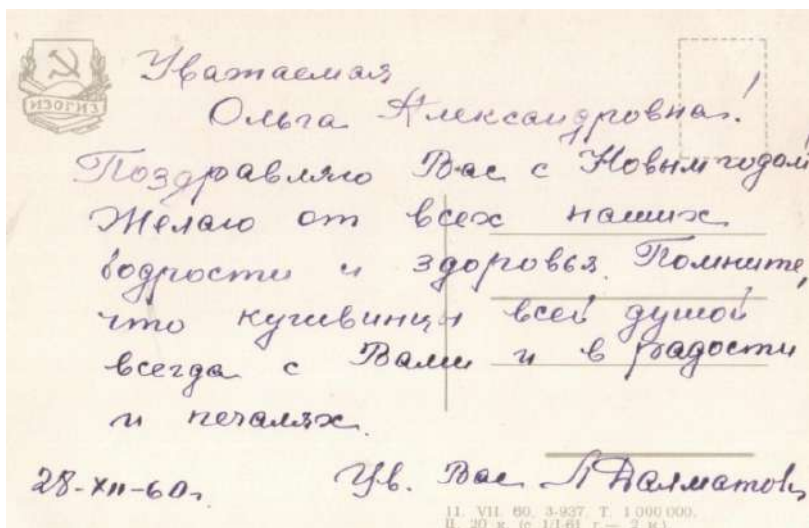 ИЗОГИЗ
Уважаемая
Ольга Александровна!
Поздравляю Вас с Новым годом!
Желаю от всех наших
бодрости и здоровья. Помните,
что кушвинцы всей душой
всегда с Вами и в радости
и печалях.
28-XII-60г.
Ув. Вас Л Далматов
11. VII. 60. 3-937. Т. 1 000 000.
Ц. 20 к. (с 1/I-61 г. — 2 к.)